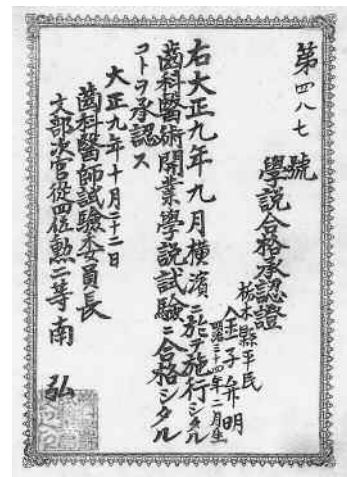 第四八七號
學説合格承認證
栃木縣平民
金子弁明
明治三十四年二月生
右大正九年九月横濱ニ於テ施行シタル
齒科醫術開業學説試驗ニ合格シタル
コトヲ承認ス
大正九年十月二十二日
齒科醫師試驗委員長
文部次官從四位勲二等南弘